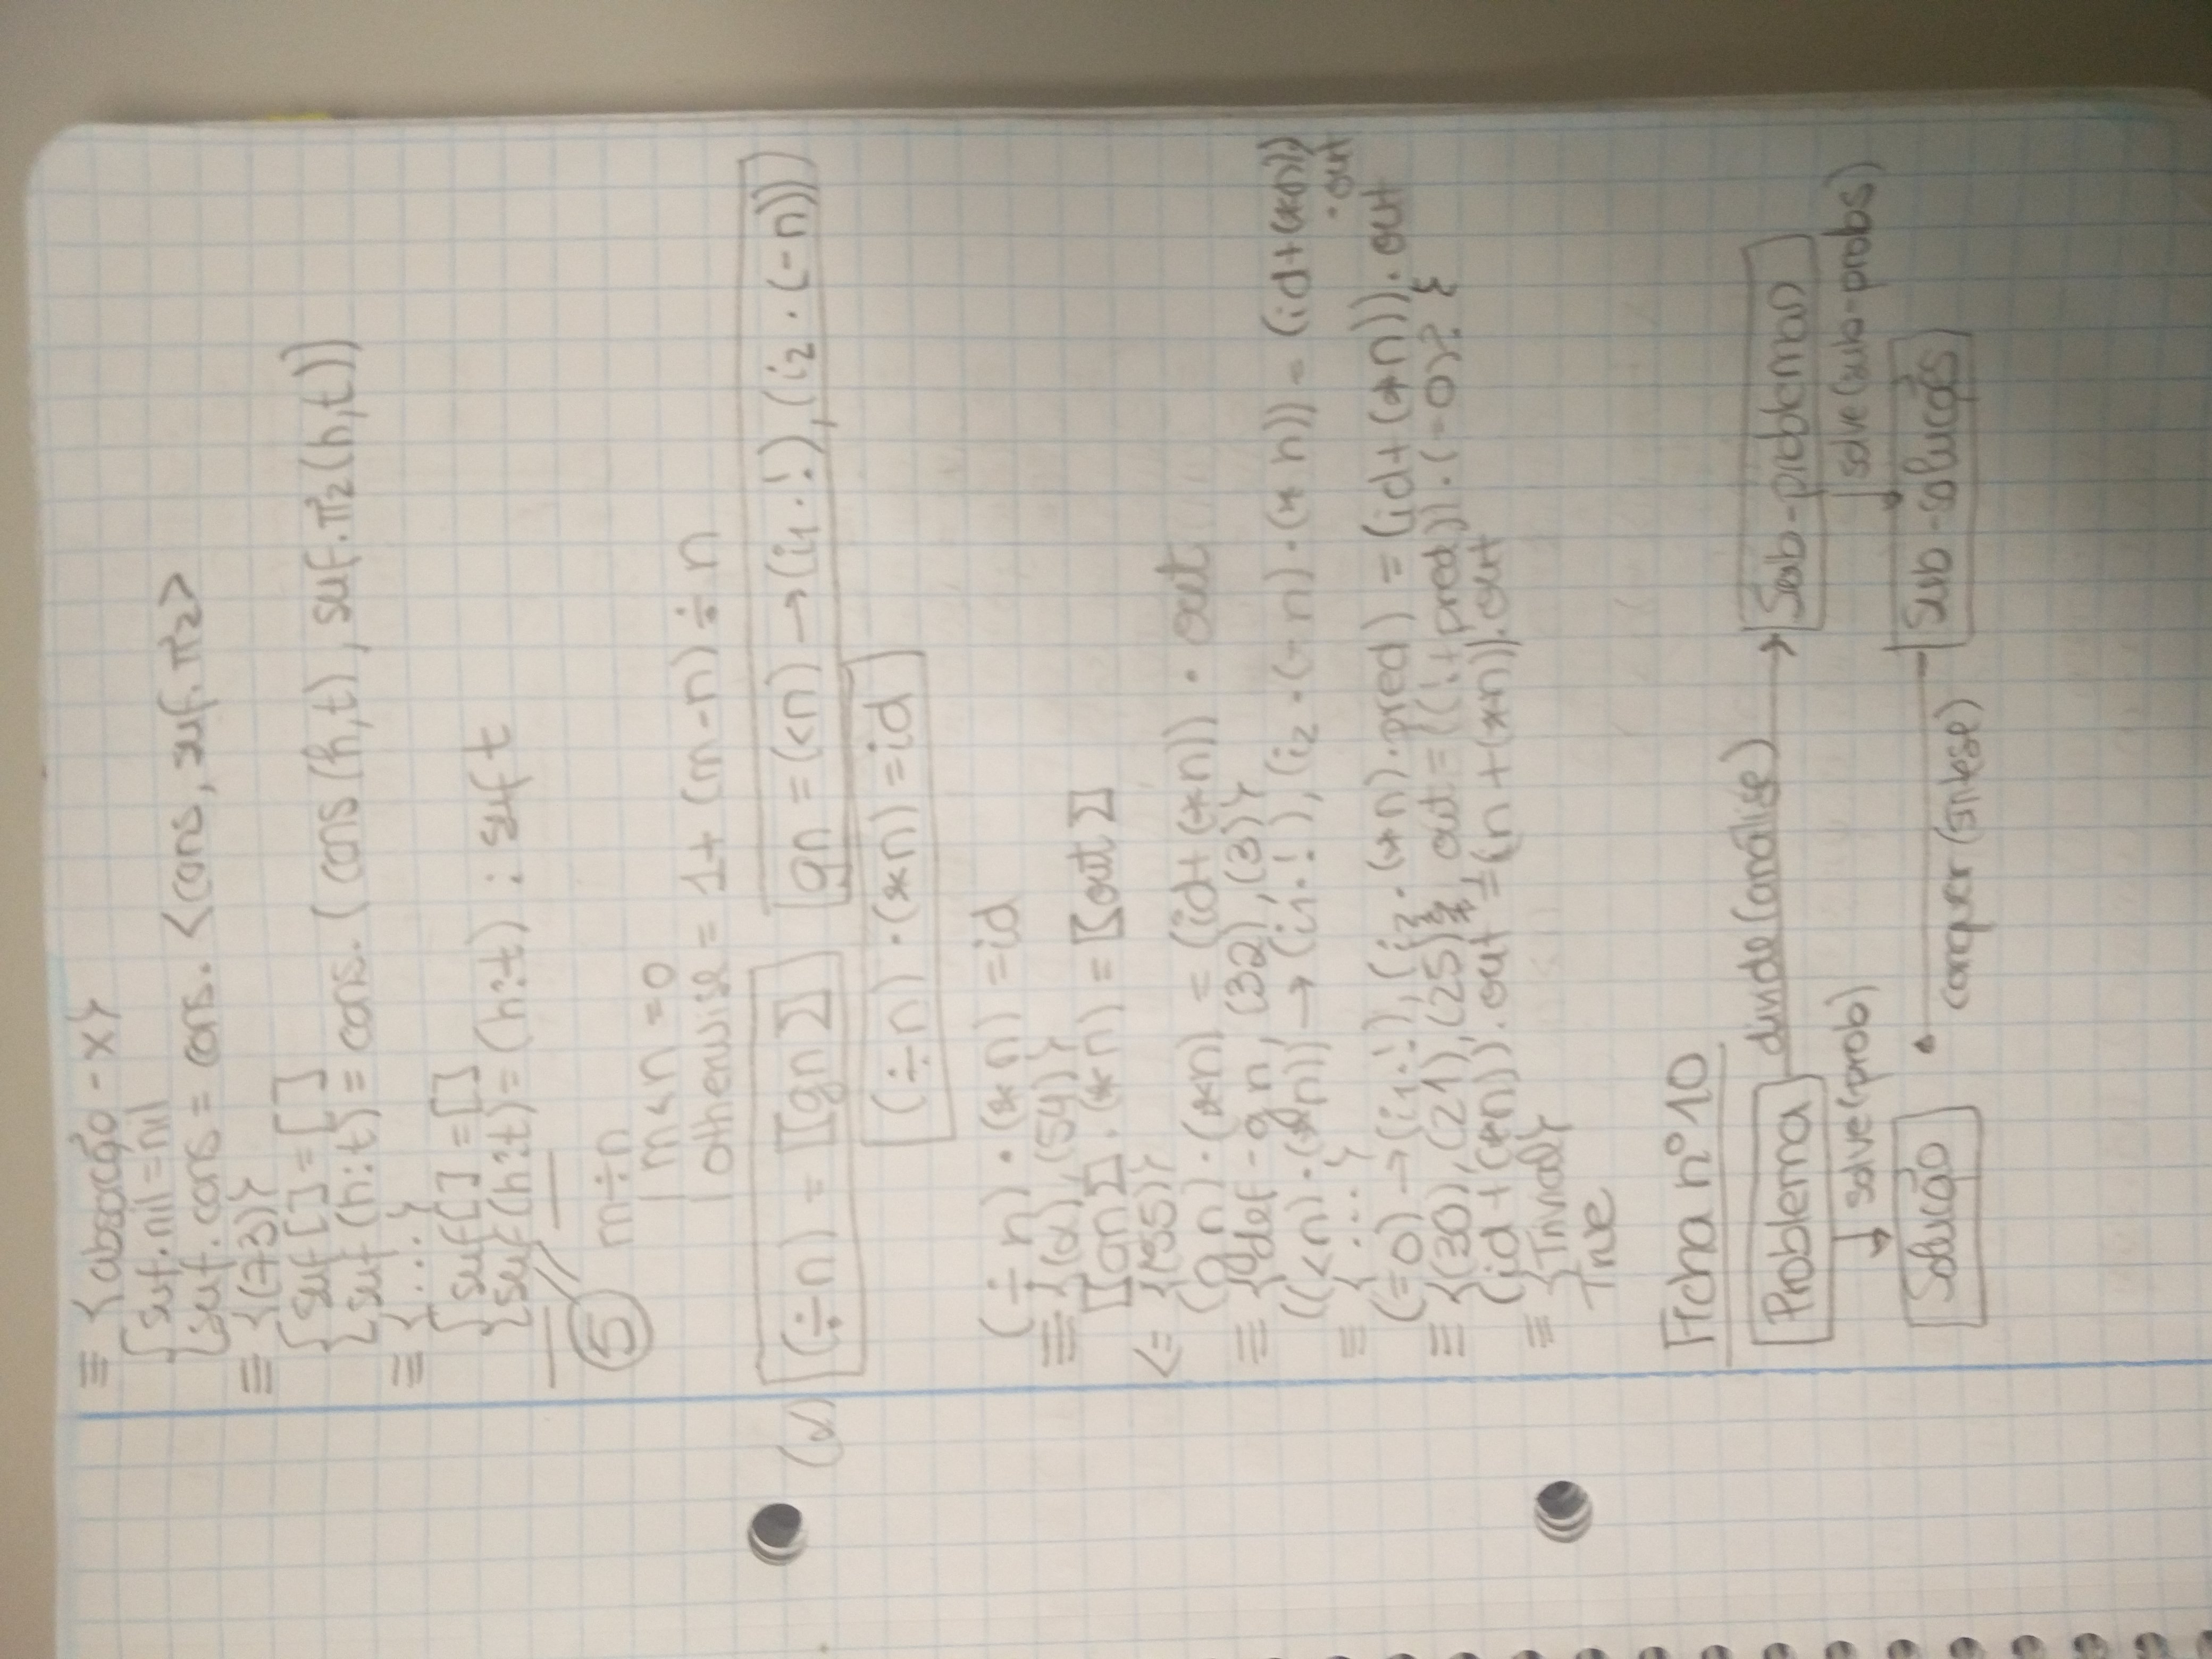 ≡ {absorção-x}
{suf.nil=nil
{suf.cons = cons.<cons, suf.π2>
≡ {(73)}
{suf[]=[]
{suf(h:t)=cons.(cons(h,t), suf.π2(h,t))
≡ {...}
{suf[]=[]
{suf(h:t)=(h:t) : suf t
5 m÷n
| m<n =0
| otherwise = 1+ (m-n)÷n
(α) (÷n) = [(gn)] gn = (<n)→(i1.!),(i2.(-n))
(÷n).(*n)=id
(÷n).(*n)=id
≡ {(α),(54)}
[(gn)].(*n) = [(out)]
<= {(55)}
(gn).(*n) = (id+(*n)).out
≡ {def-gn,(32),(3)}
((<n).(*n))→(i1.!),(i2.(-n).(*n)) = (id+(*n))
.out
≡ {...}
(=0)→(i1.!),(i2.(*n).pred) = (id+(*n)).out
≡ {(30),(21),(25), out=((!+pred)).(=0)? }
(id+(*n)).out =(n+(*n)).out
≡ {Trivial}
True
Ficha nº10
Problema divide(análise) Sub-problemas
solve(prob) solve(sub-probs)
Solução conquer(síntese) Sub-soluções